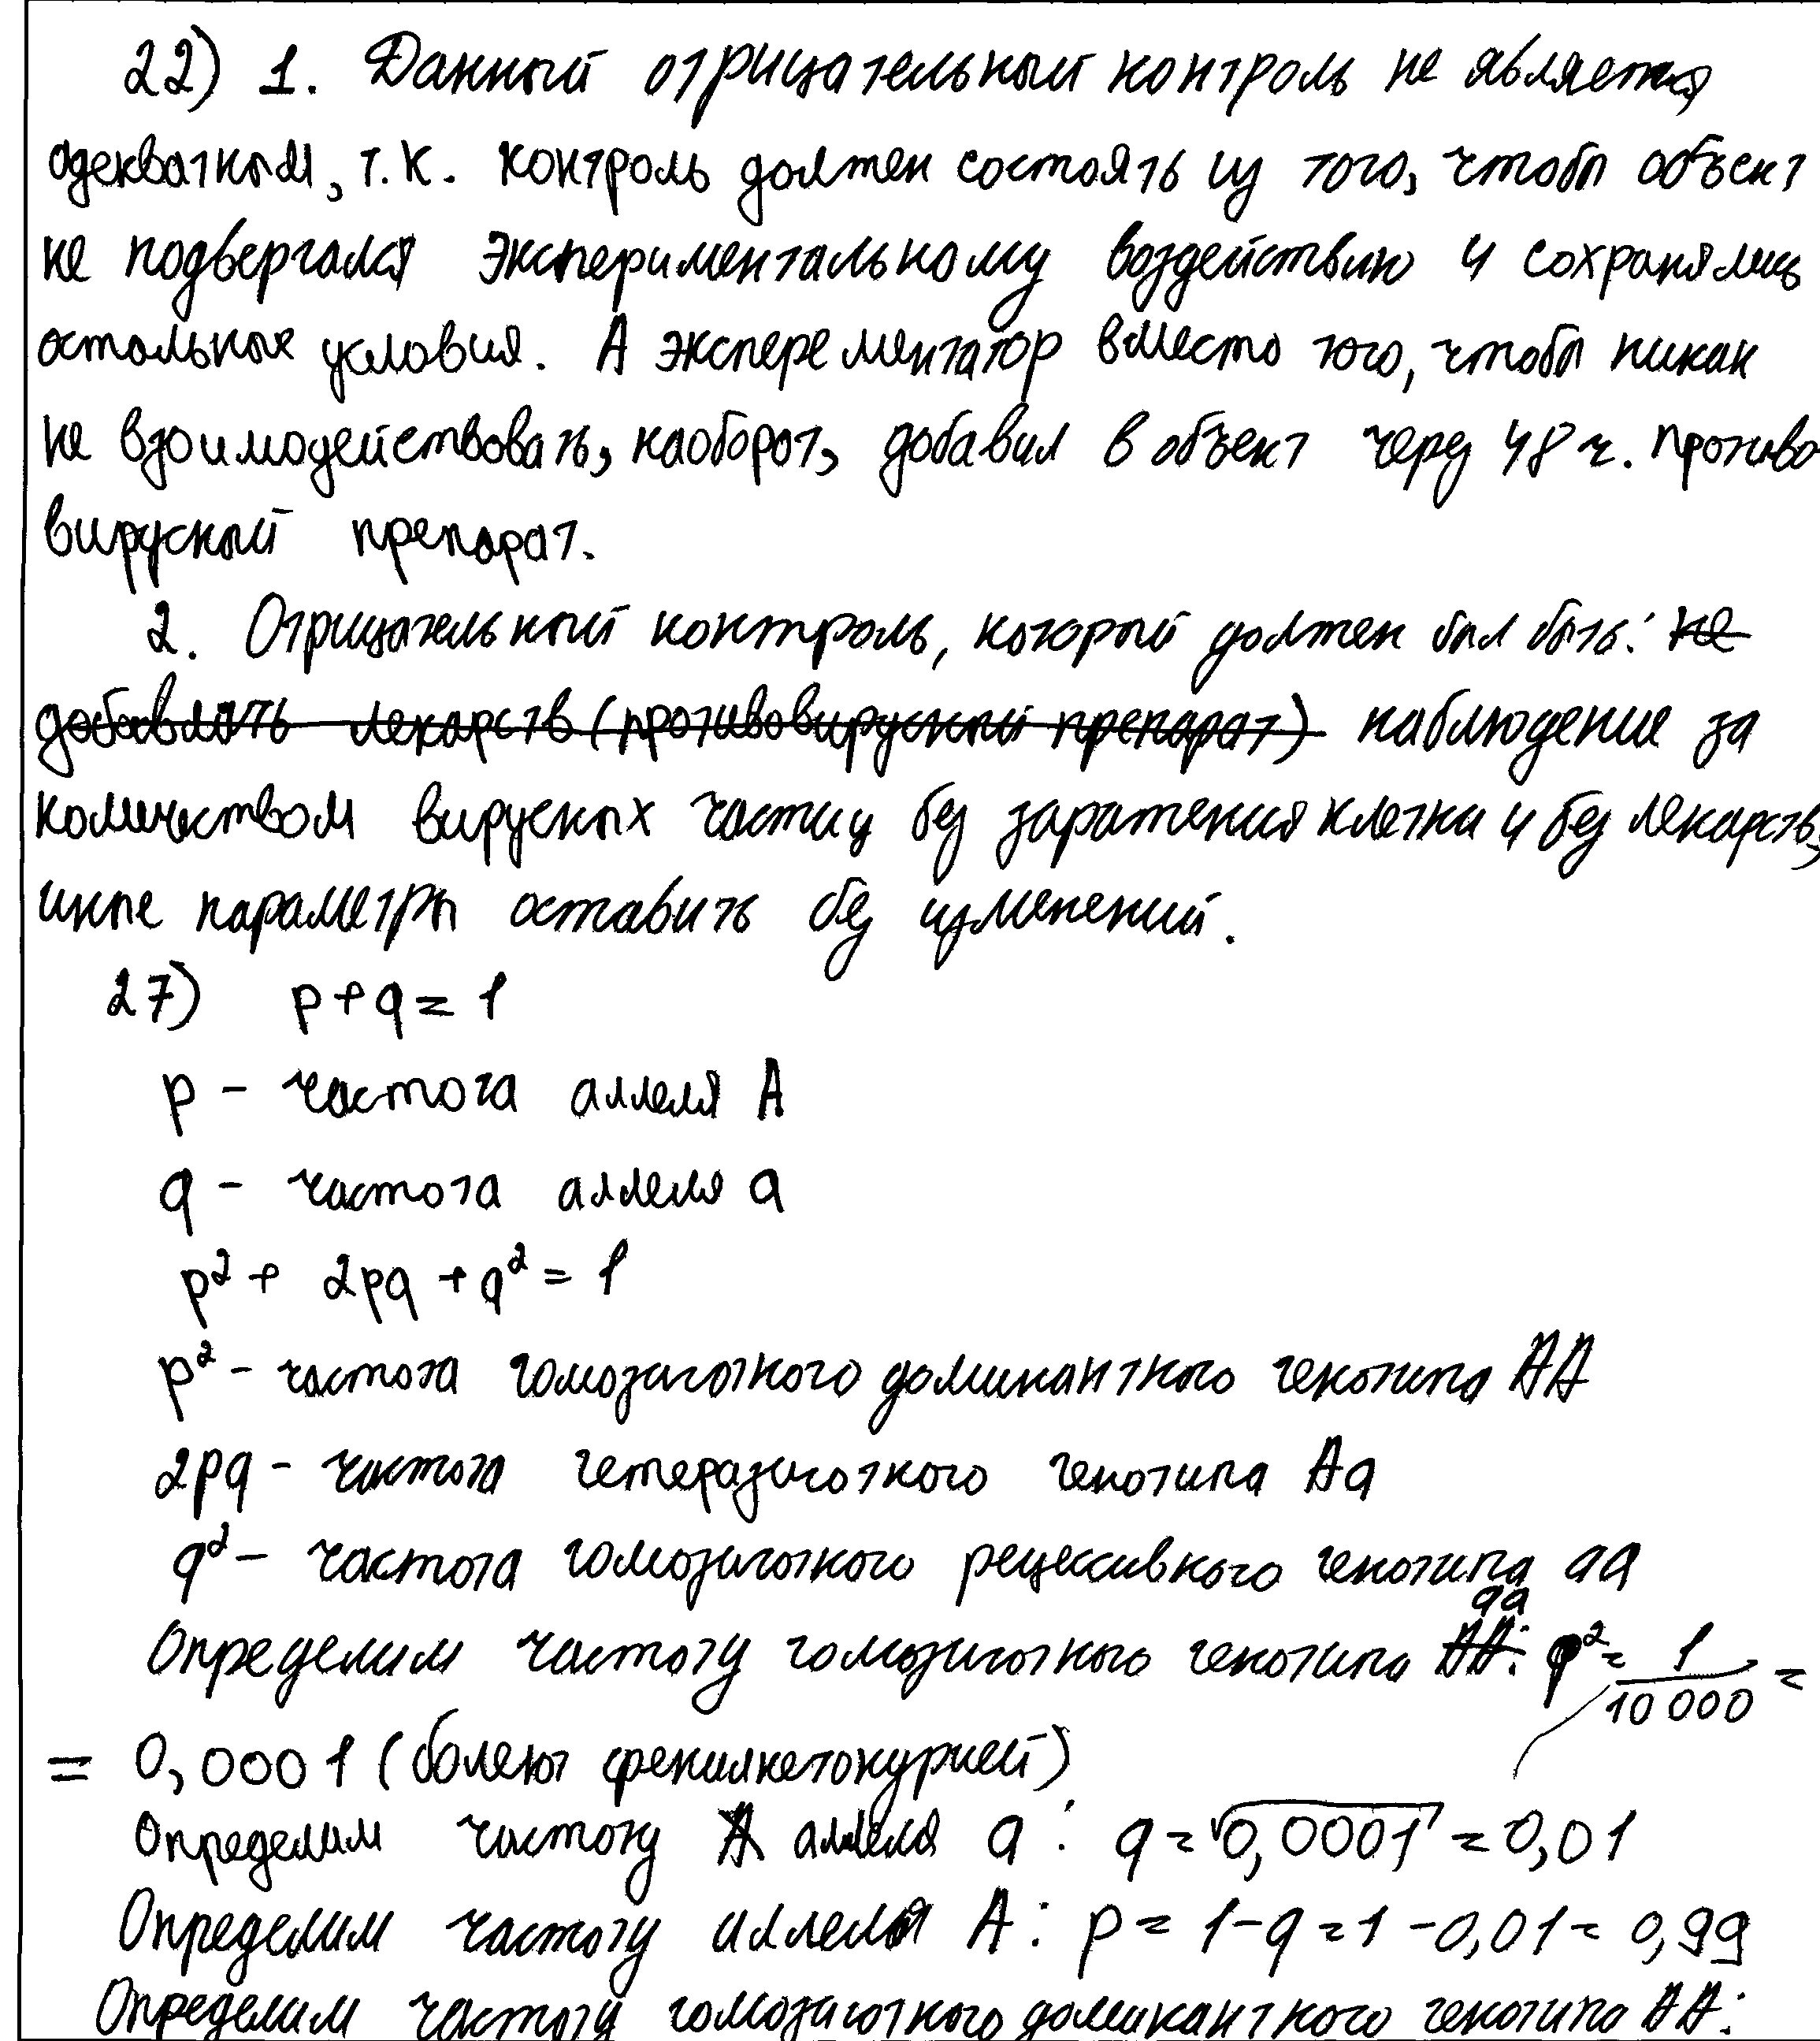 22) 1. Данный отрицательный контроль не является
адекватным, т.к. контроль должен состоять из того, чтобы объект
не подвергался экспериментальному воздействию и сохранялись
остальные условия. А эксперементатор вместо того, чтобы никак
не взоимодействовать, наоборот, добавил в объект через 48 ч. противо
вирусный препарат.
2. Отрицательный контроль, который должен был быть: не
добавлять лекарств (противовирусный препарат) наблюдение за
количеством вирусных частиц без заражения клетки и без лекарств,
иные параметры оставить без изменений.
27) p+q=1
p - частота аллеля А
q - частота аллеля а
p² + 2pq + q² = 1
p² - частота гомозиготного доминантного генотипа АА
2pq - частота гетеразиготного генотипа Аа
q² - частота гомозиготного рецессивного генотипа аа
Определим частоту гомозиготного генотипа АА: аа q² = 1/10 000 =
= 0,0001 (болеют фенилкетонурией)
Определим частоту аллеля а: q = √0,0001 = 0,01
Определим частоту аллеля А: p = 1-q = 1-0,01 = 0,99
Определим частоту гомозиготного доминантного генотипа АА: